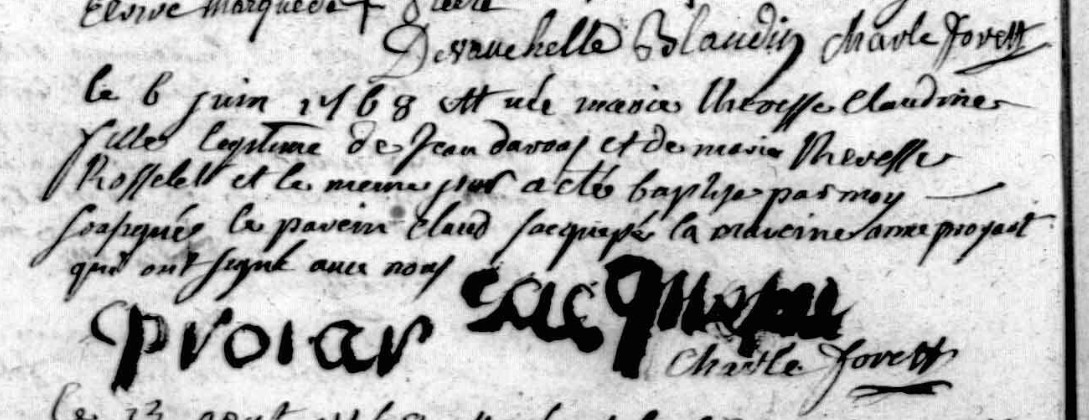 Devauchelle Blaudin Charle Jovett
le 6 juin 1768 est née marie theresse Claudine
fille legitime de Jean davoas et de marie theresse
Rosselet et le meme jour a eté baptise par moy
soussigné le parein Claud Jacque la mareine anne proyart
qui ont signé avec nous
proiar Jacque
Charle Jovett